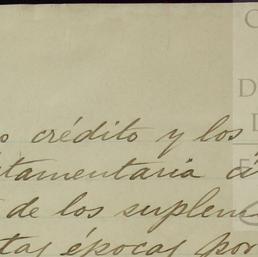 o crédito y los
tamentaria
de los suplem
tas épocas por